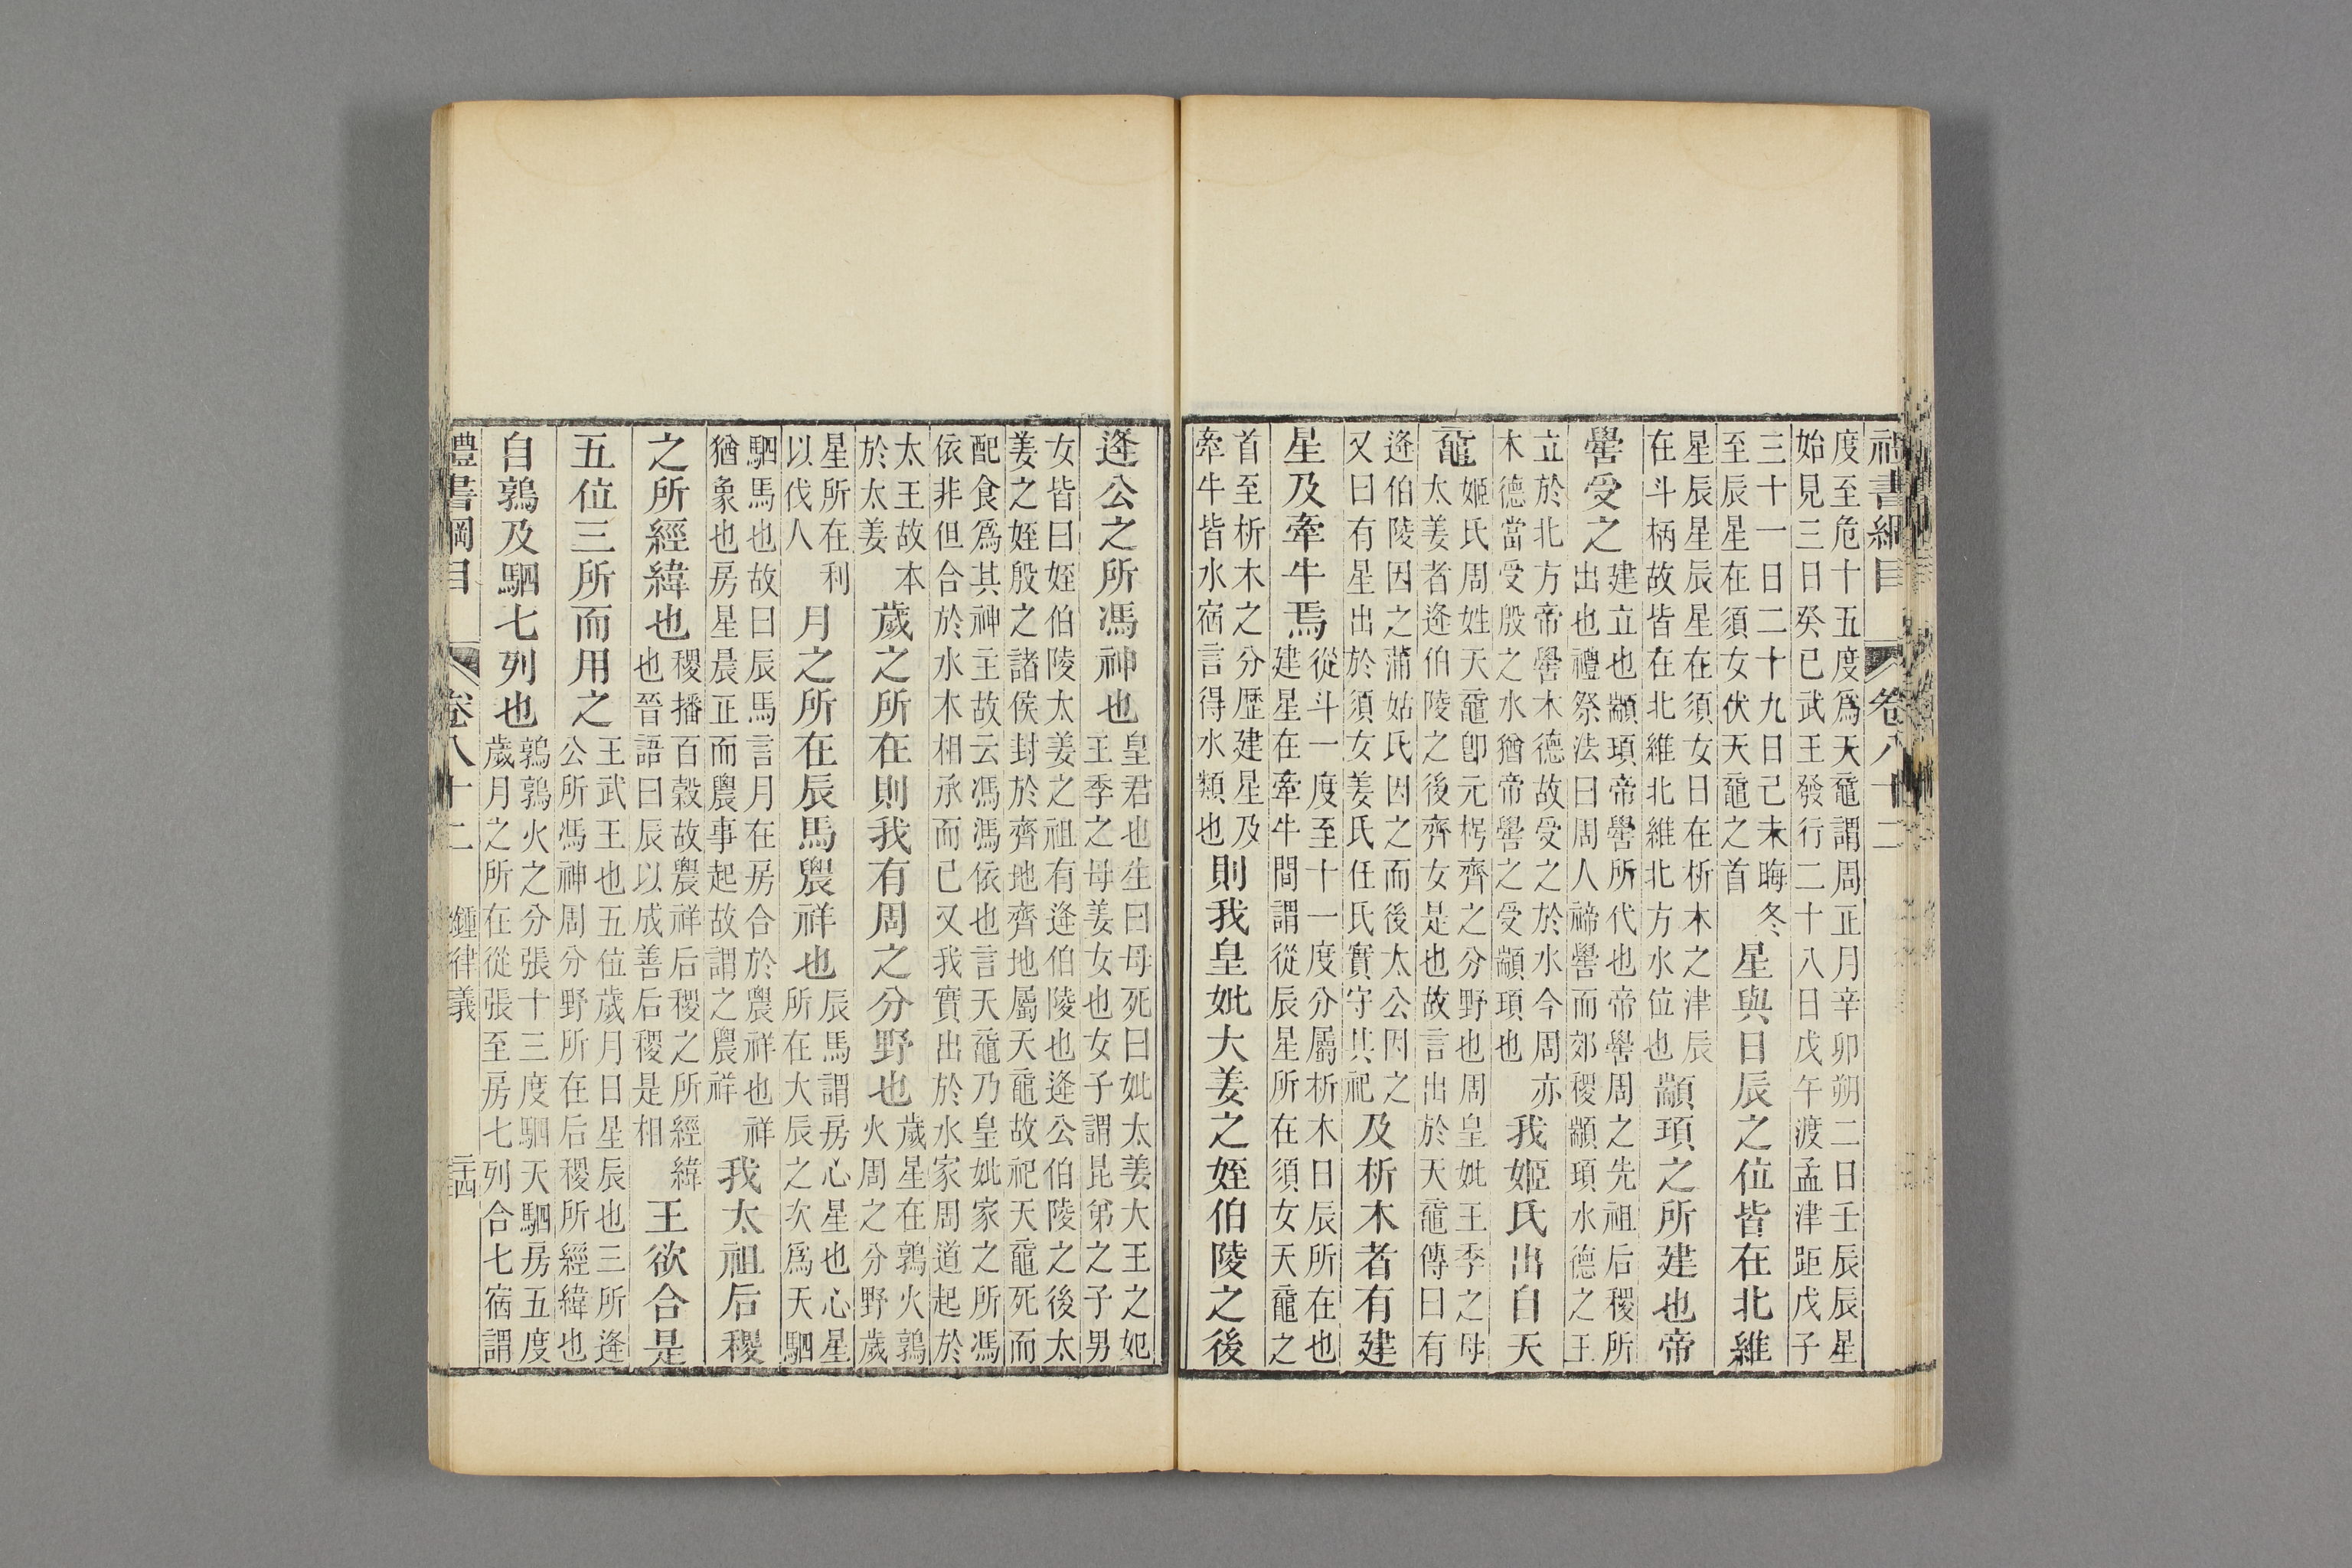 禮書綱目 卷八十二
度至危十五度爲天黿謂周正月辛卯朔二日壬辰辰星
始見三日癸巳武王發行二十八日戊午渡孟津距戊子
三十一日二十九日己未晦冬
至辰星在須女伏天黿之首
星與日辰之位皆在北維
星辰星星辰星在須女日在析木之津辰
在斗柄故皆在北維北維北方水位也
顓頊之所建也帝
嚳受之
建立也顓頊帝嚳所代也帝嚳周之先祖后稷所
出也禮祭法曰周人禘嚳而郊稷顓頊水德之王
立於北方帝嚳木德故受之於水今周亦
木德當受殷之水猶帝嚳之受顓頊也
我姬氏出自天
黿
姬氏周姓天黿卽元枵齊之分野也周皇妣王季之母
太姜者逄伯陵之後齊女是也故言出於天黿傳曰有
逄伯陵因之蒲姑氏因之而後太公因之
又曰有星出於須女姜氏任氏實守其祀
及析木者有建
星及牽牛焉
從斗一度至十一度分屬析木日辰所在也
建星在牽牛間謂從辰星所在須女天黿之
首至析木之分歷建星及
牽牛皆水宿言得水類也
則我皇妣大姜之姪伯陵之後
逄公之所馮神也
皇君也生曰母死曰妣太姜大王之妃
王季之母姜女也女子謂昆弟之子男
女皆曰姪伯陵太姜之祖有逄伯陵也逄公伯陵之後太
姜之姪殷之諸侯封於齊地齊地屬天黿故祀天黿死而
配食爲其神主故云馮馮依也言天黿乃皇妣家之所馮
依非但合於水木相承而已又我實出於水家周道起於
太王故本
於太姜
歲之所在則我有周之分野也
歲星在鶉火鶉
火周之分野歲
星所在利
以伐人
月之所在辰馬農祥也
辰馬謂房心星也心星
所在大辰之次爲天駟
駟馬也故曰辰馬言月在房合於農祥也祥
猶象也房星晨正而農事起故謂之農祥
我太祖后稷
之所經緯也
稷播百穀故農祥后稷之所經緯
也晉語曰辰以成善后稷是相
王欲合是
五位三所而用之
王武王也五位歲月日星辰也三所逄
公所馮神周分野所在后稷所經緯也
自鶉及駟七列也
鶉鶉火之分張十三度駟天駟房五度
歲月之所在從張至房七列合七宿謂
禮書綱目 卷八十二 鍾律義 二十四